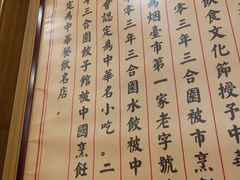 飲食文化節授予中
〇三年三合園被市烹
為烟臺市第一家老字號
〇年三合園水餃被中
會認定為中華名小吃。二
三年三合園餃子館被中國烹飪
定為中華餐飲名店。